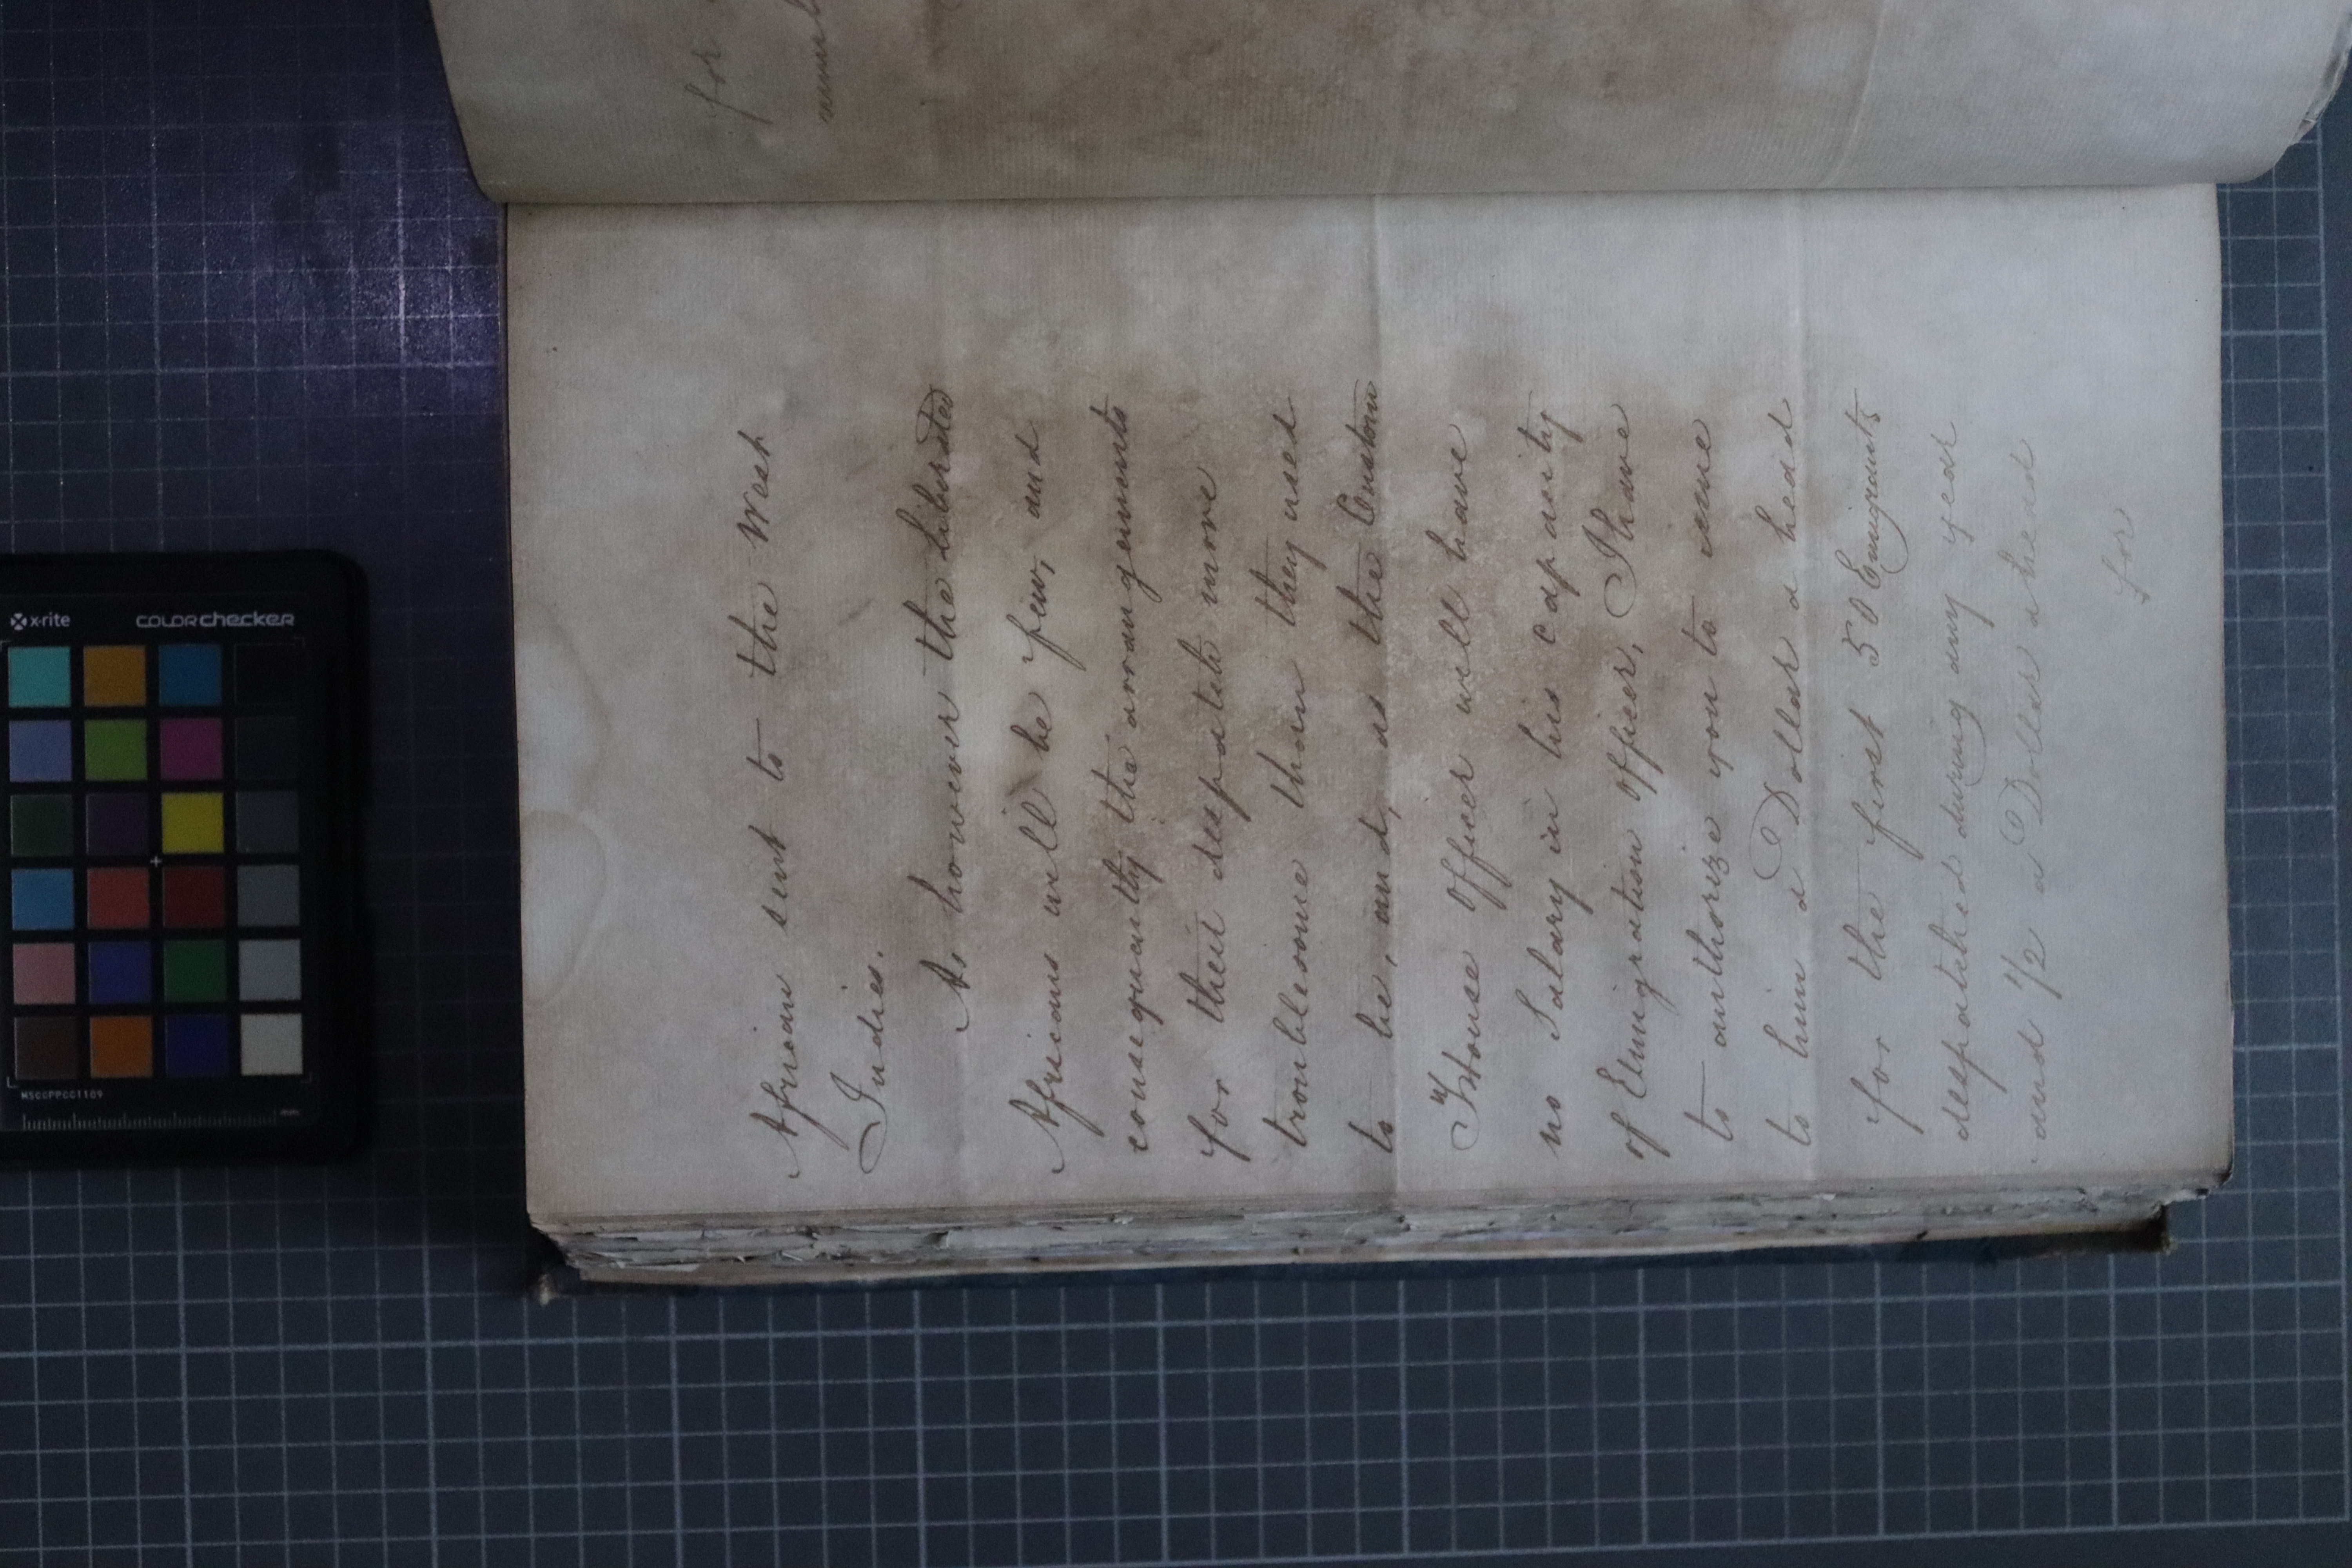 African sent to the West
Indies.
As however the liberated
Africans will be few, and
consequently the arrangements
for their despatch more
troublesome than they used
to be, and, as the Custom
"House Officer will have
no Salary in his capacity
of Emigration Officer, I have
to authorize you to issue
to him a Dollar a head
for the first 50 Emigrants
despatched during any year
and 1/2 a Dollar a head
for
for
x-rite colorchecker
MSCCPPCC1109